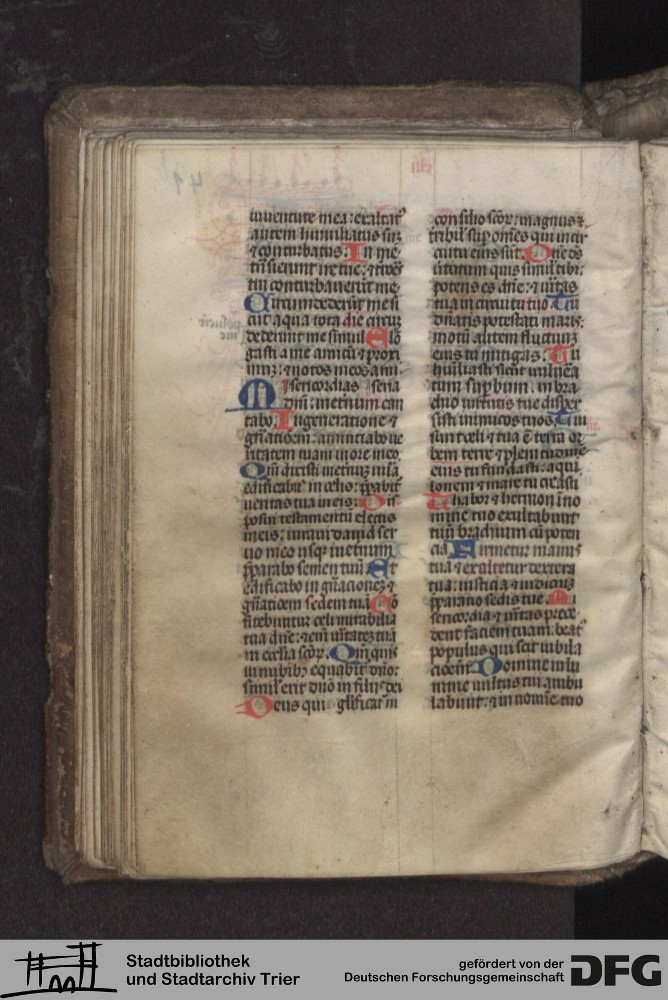 iuventute mea: exaltat9
autem humiliatus sū
⁊ conturbatus: In me
tu conturbaverūt me
Circumdederūt me si
cut aqua tota die circū
dederunt me simul Elō
gasti a me amicū ⁊ prox
imū: ⁊ notos meos a mi
Misericordias
dn̄i: in eternum can
tabo. In generatione ⁊
gn̄atiōem: annuntiabo ve
ritatem tuam in ore meo.
Qm̄ dixisti in eternū mīa
edificabit᷑ in celis: p̄pabit᷑
veritas tua in eis: Dis
posui testamentū electis
meis: iuravi david ser
vo meo usq in eternum
p̄parabo semen tuū Et
edificabo in gn̄acionez ⁊
gn̄atioem sedem tuā Cō
fitebuntur celi mirabilia
tua dn̄e: ⁊ em̄ v̄itatez tuā
in ecclīa scōr. Qm̄ quis
in nubibꝫ equabit᷑ dn̄o:
similˀ erit dn̄o in filijs dei
Deus qui glˀificat᷑ in
consilio scōr: magnus ⁊
tribilˀ sup om̄es qui in cir
cuitu eius sūt: Dn̄e ds̄
virtutum quis similˀ tibi:
potens es dn̄e: ⁊ v̄itas
tua in circuitu tuo. Tu
dn̄aris potestati maris:
motū autem fluctuū
eius tu mitigas. Tu
humiliasti sicut vulnēa
tum supbum: in bra
chio virtutis tue disper
sisti inimicos tuos. Tui
sunt celi ⁊ tua ē terra or
bem terre ⁊ plenitudinē
eius tu fundasti: aqui
lonem ⁊ mare tu creasti
Thabor ⁊ hermon ī no
mine tuo exultabunt
tuū brachium cū poten
cia Firmetur manus
tua ⁊ exaltetur dextera
tua: iusticia ⁊ iudiciū
p̄paratio sedis tue. Mi
sericordia ⁊ v̄itas prece
dent faciem tuam: beat9
populus qui scit iubila
cioēm Domine in lu
mine vultus tui ambu
labunt: ⁊ in nomīe tuo
Stadtbibliothek
und Stadtarchiv Trier
gefördert von der
Deutschen Forschungsgemeinschaft
DFG